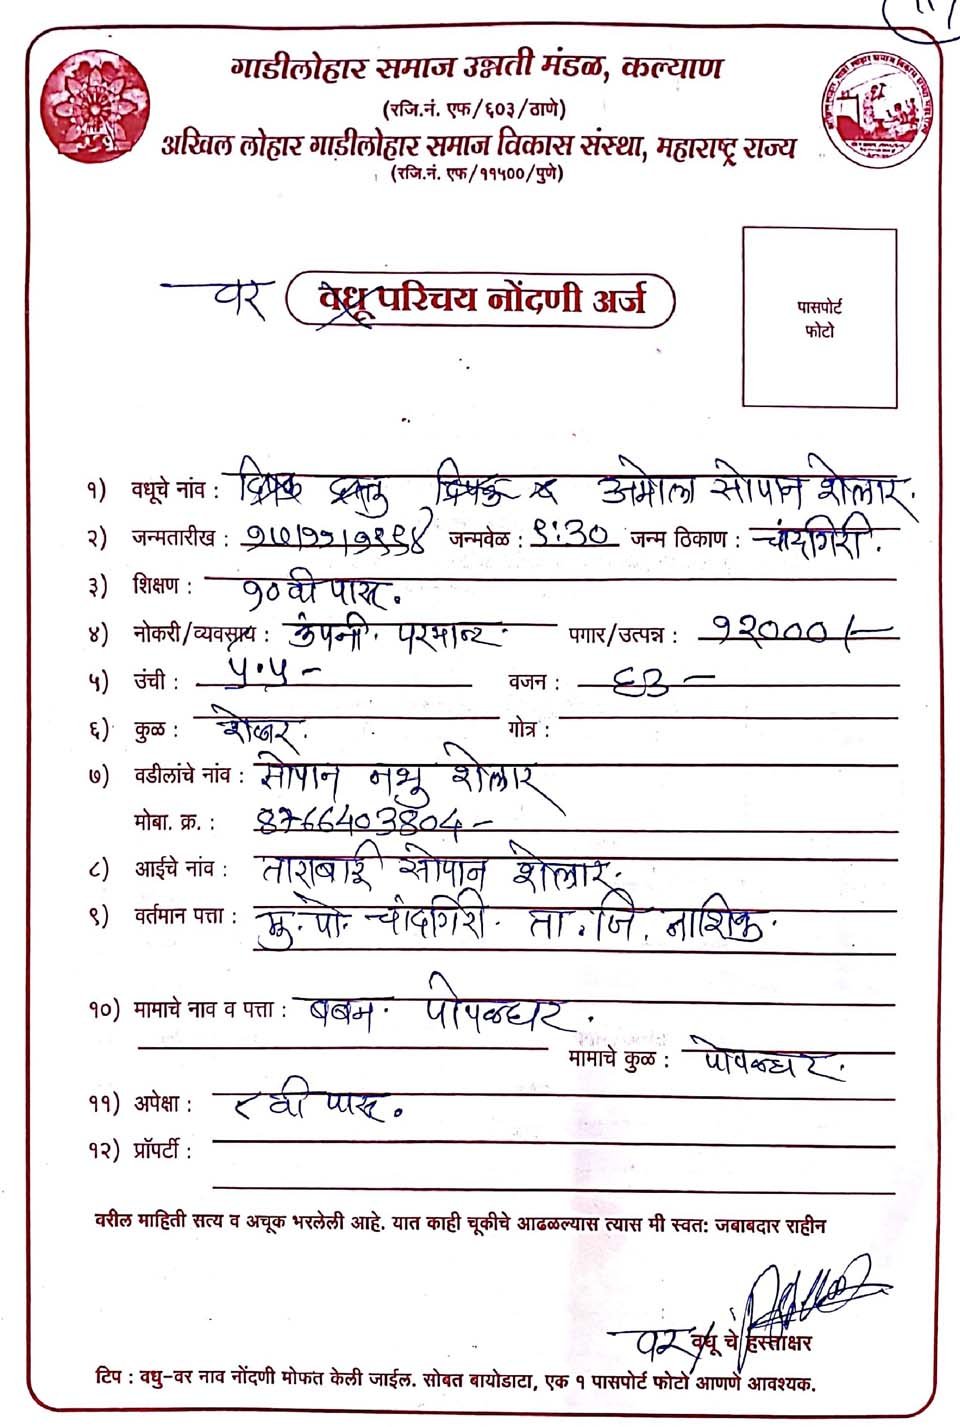 गाडीलोहार समाज उन्नती मंडळ, कल्याण
(रजि.नं. एफ/६०३/ठाणे)
अखिल लोहार गाडीलोहार समाज विकास संस्था, महाराष्ट्र राज्य
(रजि.नं. एफ/११५००/पुणे)
वर वधू परिचय नोंदणी अर्ज
पासपोर्ट
फोटो
१) वधूचे नांव : अमोल सोपान शेलार.
२) जन्मतारीख : जन्मवेळ : ९:30 जन्म ठिकाण : चांदगिरी.
३) शिक्षण : १०वी पास.
४) नोकरी/व्यवसाय : कंपनी. परमानंट. पगार/उत्पन्न : १२000/-
५) उंची : ५.५ - वजन : ६३ -
६) कुळ : शेलार. गोत्र :
७) वडीलांचे नांव : सोपान नभु शेलार
मोबा. क्र. : 8766403804 -
८) आईचे नांव : ताराबाई सोपान शेलार.
९) वर्तमान पत्ता : मु. पो. चांदगिरी. ता. जि. नाशिक.
१०) मामाचे नाव व पत्ता : बबन. पोपळघर.
मामाचे कुळ : पोपळघर.
११) अपेक्षा : ८ वी पास.
१२) प्रॉपर्टी :
वरील माहिती सत्य व अचूक भरलेली आहे. यात काही चूकीचे आढळल्यास त्यास मी स्वत: जबाबदार राहीन
वर वधू चे हस्ताक्षर
टिप : वधु-वर नाव नोंदणी मोफत केली जाईल. सोबत बायोडाटा, एक १ पासपोर्ट फोटो आणणे आवश्यक.